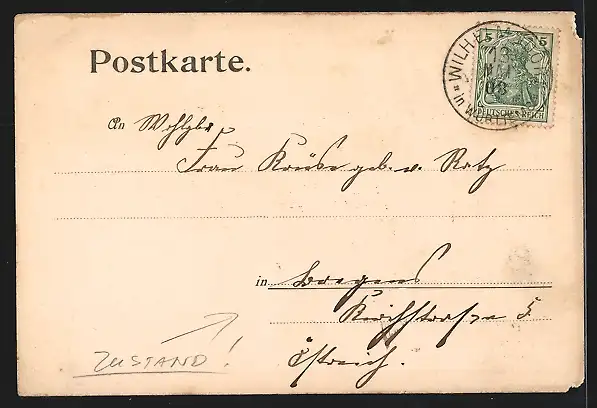 Postkarte.
5 5
WILHELM
19
03
IN WÜRTT
DEUTSCHES REICH
An Wohlgb.
Frau Kruse geb. v. Ratz
in Bregenz
Kirchstrasse 5.
Östreich.
ZUSTAND!